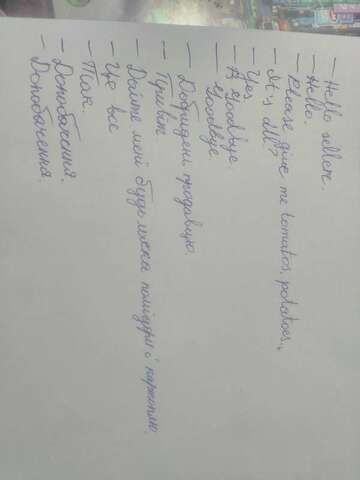 - Hello sellere.
- Hello.
- Please give me tomatos, potatoes.
- It's all?
- Yes
- A Goodbye.
- Goodbye
- Добридень продавцю.
- Привіт
- Дайте мені будь ласка помідори і картоплю.
- Це все
- Так.
- Допобачення.
- Допобачення.